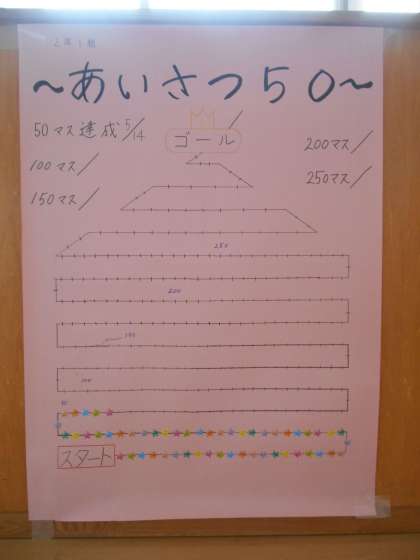 2年1組
～あいさつ50～
50マス達成5/14
ゴール /
200マス/
100マス/
250マス/
150マス/
250
200
150
100
50
スタート